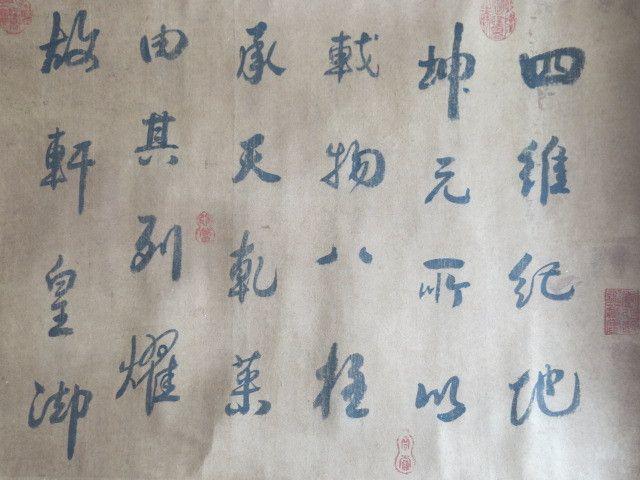 四維紀地
坤元所以
載物八柱
承天乾
由其列耀
故軒皇御